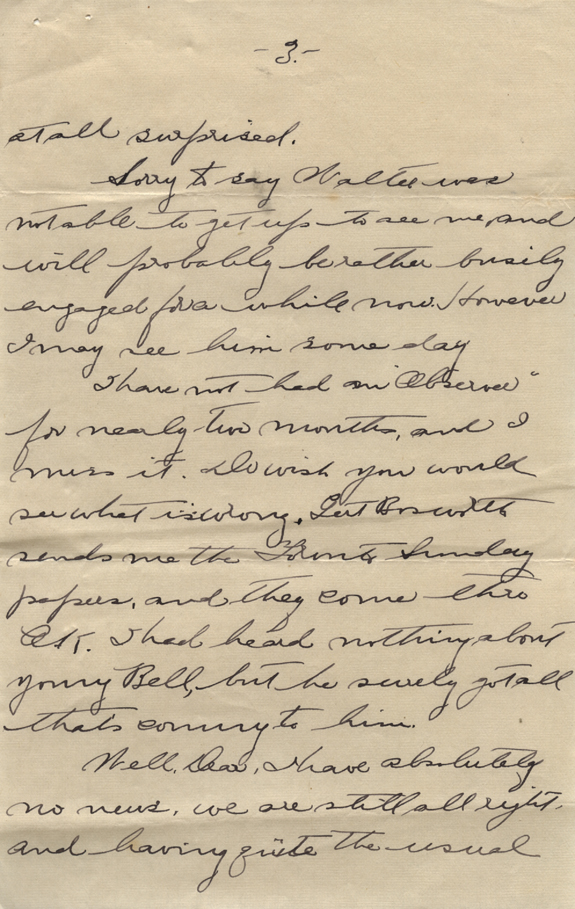 - 3. -
at all surprised.
Sorry to say Walter was
not able to get up to see me, and
will probably be rather busily
engaged for a while now. However
I may see him some day
I have not had an "Observer"
for nearly two months, and I
miss it. Do wish you would
see what is wrong. Gert Bosworth
sends me the Toronto Sunday
papers, and they come thro
O.K. I had heard nothing about
young Bell, but he surely got all
that's coming to him.
Well, Dear, I have absolutely
no news, we are still all right,
and having quite the usual